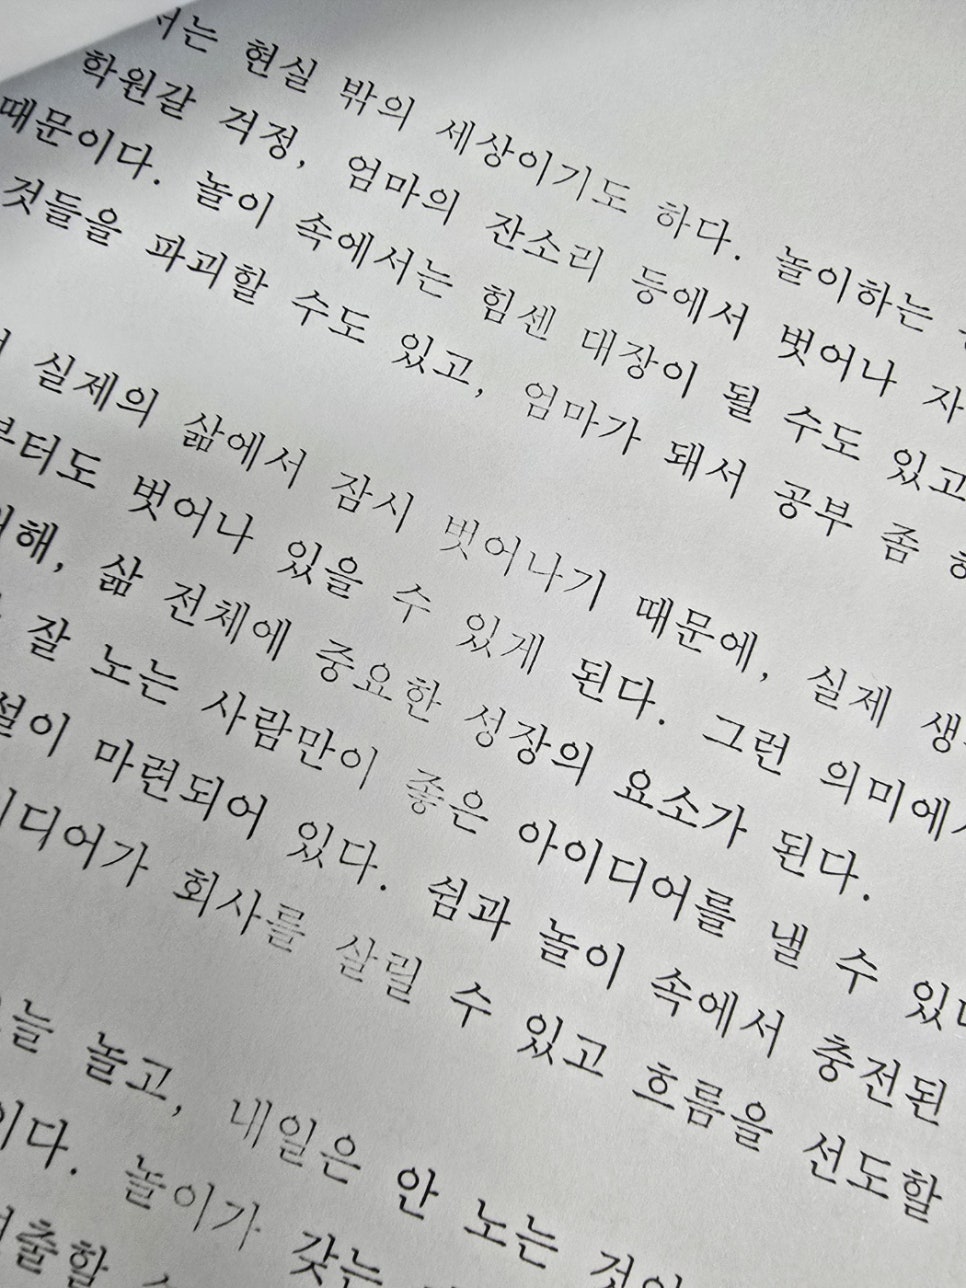 서는 현실 밖의 세상이기도 하다. 놀이하는
학원갈 걱정, 엄마의 잔소리 등에서 벗어나 자
때문이다. 놀이 속에서는 힘센 대장이 될 수도 있고
것들을 파괴할 수도 있고, 엄마가 돼서 공부 좀
실제의 삶에서 잠시 벗어나기 때문에, 실제 생
부터도 벗어나 있을 수 있게 된다. 그런 의미에서
해, 삶 전체에 중요한 성장의 요소가 된다.
잘 노는 사람만이 좋은 아이디어를 낼 수 있
설이 마련되어 있다. 쉼과 놀이 속에서 충전된
이디어가 회사를 살릴 수 있고 흐름을 선도할
늘 놀고, 내일은 안 노는 것이
이다. 놀이가 갖는
출할